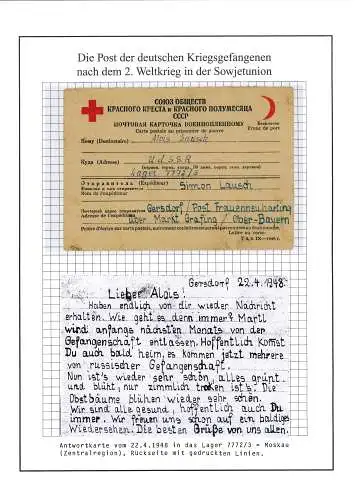 Die Post der deutschen Kriegsgefangenen
nach dem 2. Weltkrieg in der Sowjetunion
СОЮЗ ОБЩЕСТВ
КРАСНОГО КРЕСТА и КРАСНОГО ПОЛУМЕСЯЦА
СССР
ПОЧТОВАЯ КАРТОЧКА ВОЕННОПЛЕННОМУ
Carte postale au prisonnier de guerre
Бесплатно
Franc de port
Кому (Destinataire) Alois Lausch
Куда (Adresse) UdSSR
Lager 7772/3
Отправитель (Expéditeur) Simon Lausch
Gersdorf / Post Frauenneuharting
über Markt Grafing / Ober-Bayern
Gersdorf 22.4.1948
Lieber Alois!
Haben endlich von dir wieder Nachricht
erhalten. Wie geht es denn immer? Martl
wird anfangs nächsten Monats von der
Gefangenschaft entlassen. Hoffentlich kommst
Du auch bald heim, es kommen jetzt mehrere
von russischer Gefangenschaft.
Nun ist's wieder sehr schön, alles grünt
und blüht, nur zimmlich troken ist's. Die
Obstbäume blühen wieder sehr schön.
Wir sind alle gesund, hoffentlich auch Du
immer. Wir freuen uns schon auf ein baldiges
Wiedersehen. Die besten Grüße von uns allen.
Antwortkarte vom 22.4.1948 in das Lager 7772/3 = Moskau
(Zentralregion), Rückseite mit gedruckten Linien.